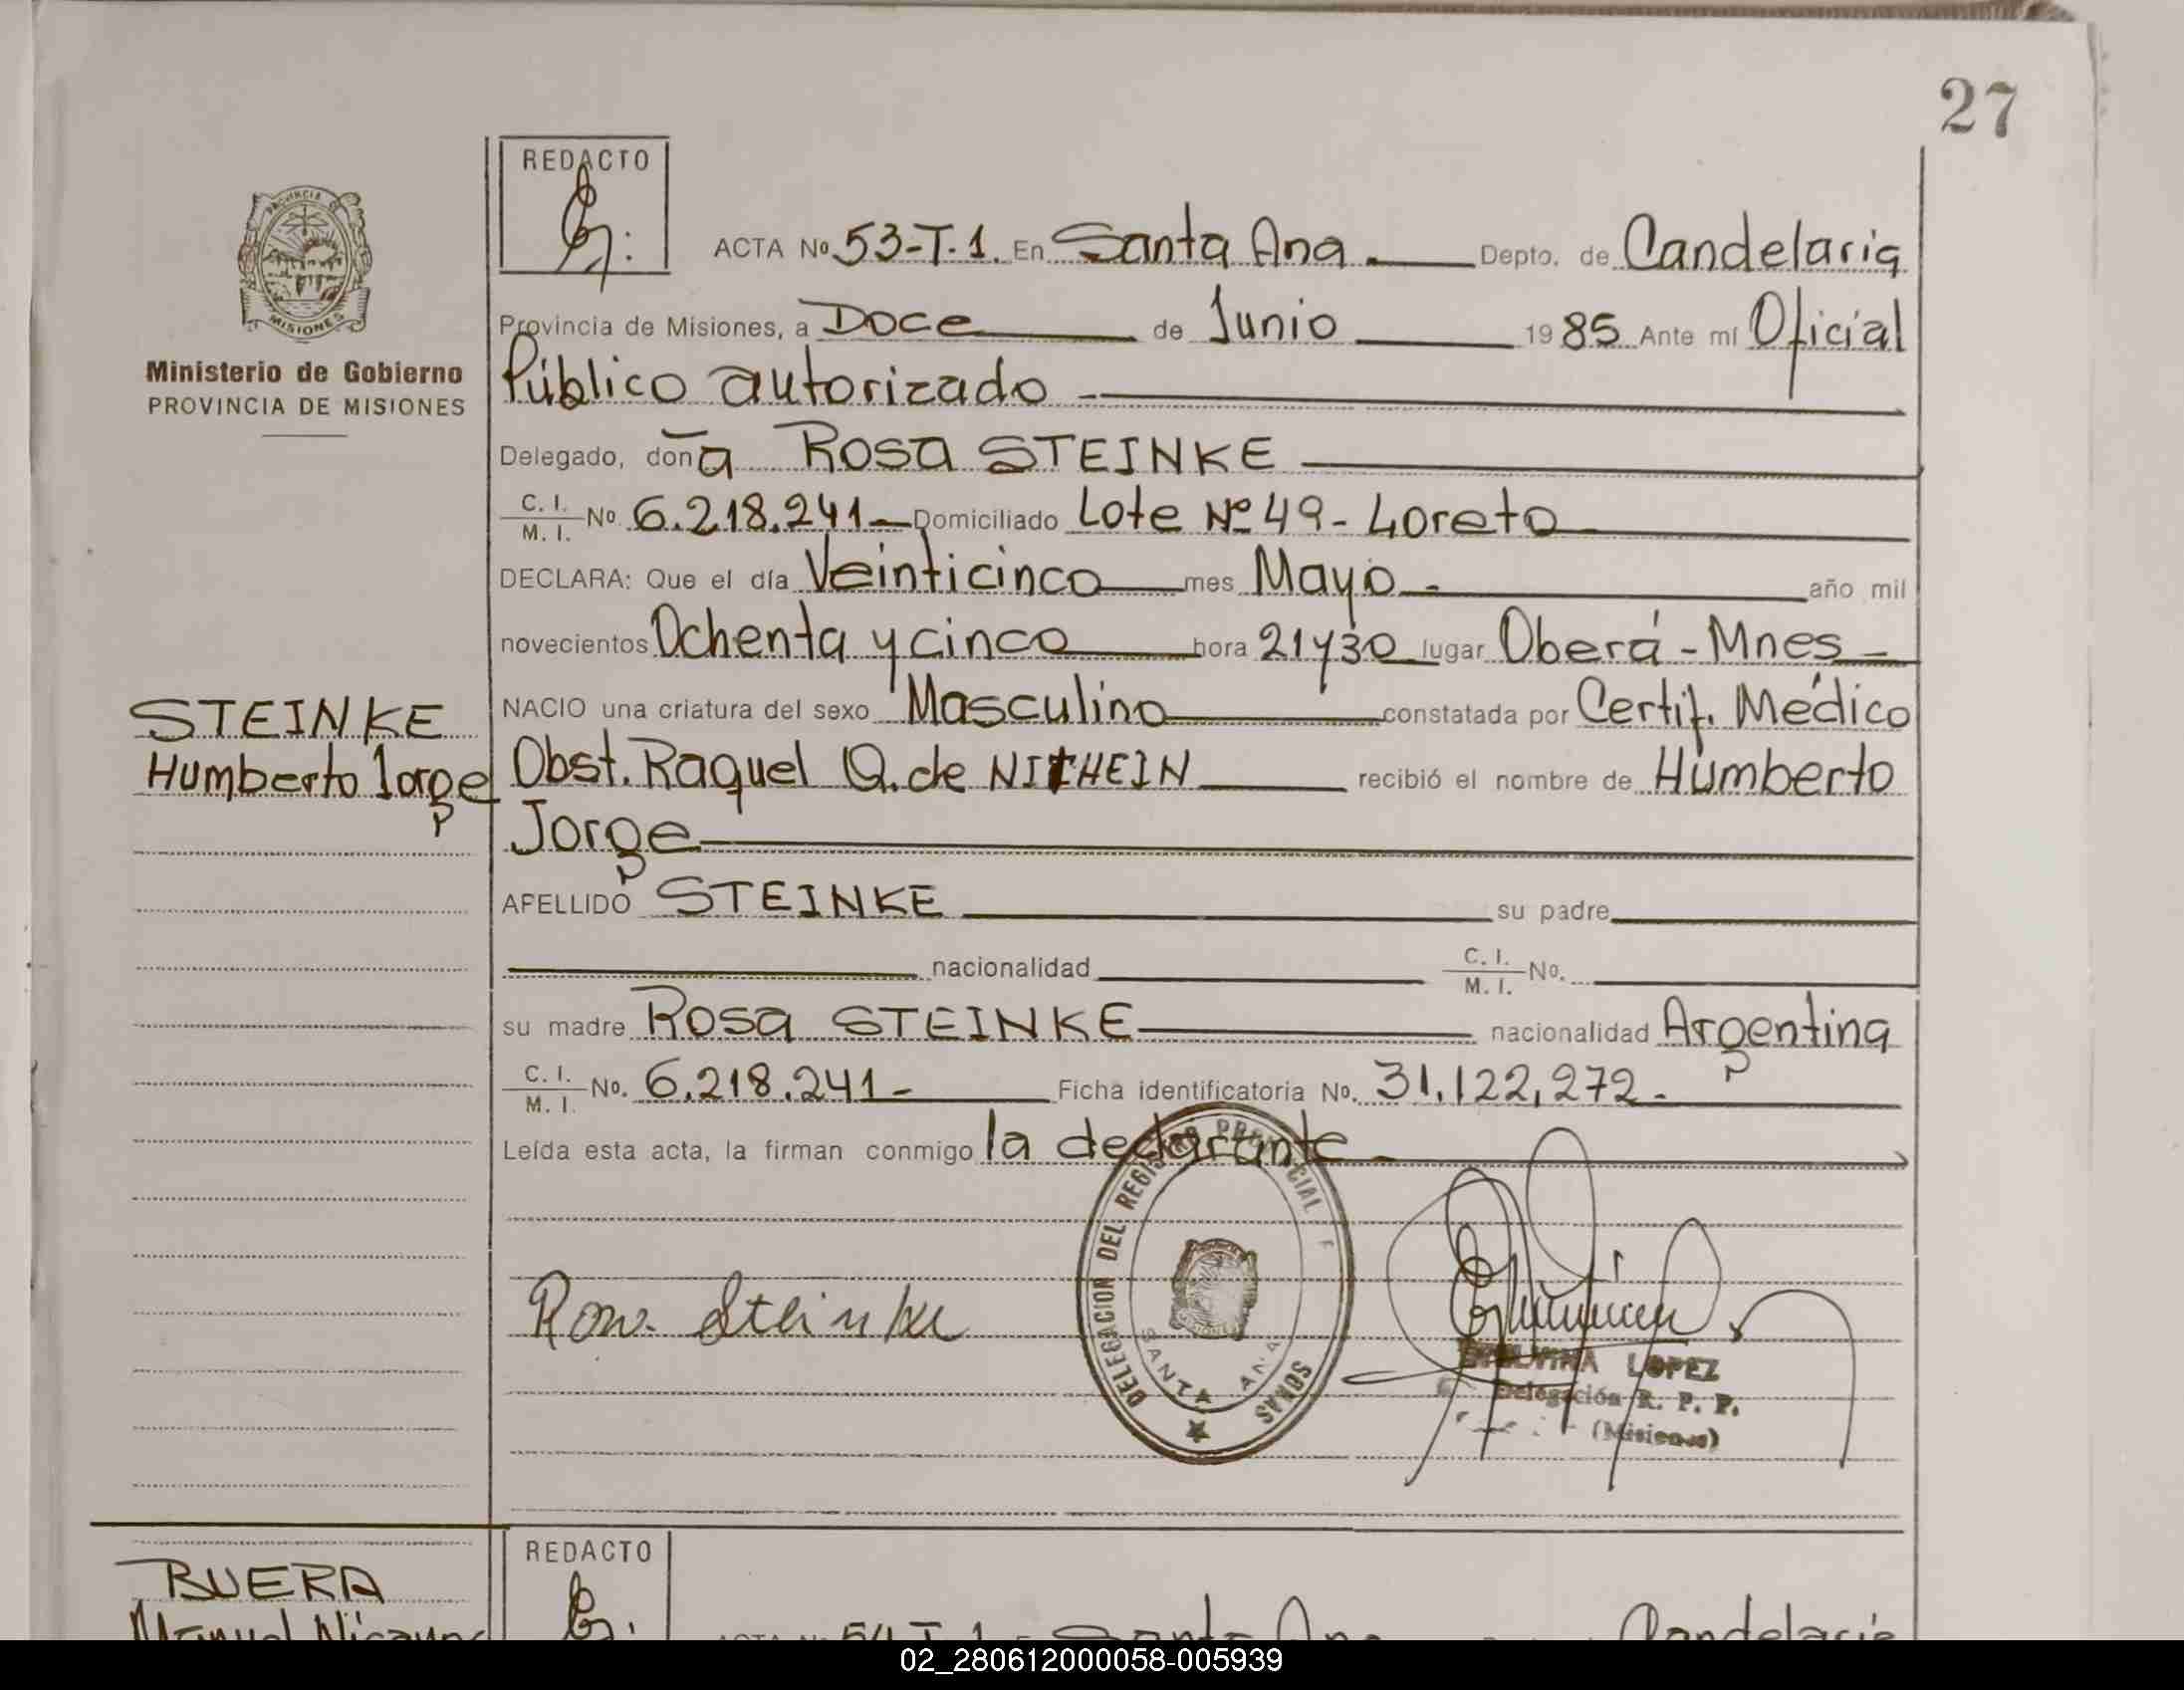 27
REDACTO
PROVINCIA DE
MISIONES
Ministerio de Gobierno
PROVINCIA DE MISIONES
ACTA Nº 53-T-1. En Santa Ana Depto. de Candelaria
Provincia de Misiones, a Doce de Junio 1985 Ante mí Oficial
Público autorizado
Delegado, doña Rosa STEINKE
C. I. M. I. Nº 6.218.241 Domiciliado Lote Nº 49 - Loreto
DECLARA: Que el día Veinticinco mes Mayo - año mil
novecientos Ochenta y cinco hora 21 y 30 lugar Oberá - Mnes
NACIO una criatura del sexo Masculino constatada por Certif. Médico
STEINKE
Humberto Jorge
Obst. Raquel Q. de recibió el nombre de Humberto
Jorge
APELLIDO STEINKE su padre
nacionalidad C. I. M. I. No.
su madre Rosa STEINKE nacionalidad Argentina
C. I. M. I. No. 6.218.241- Ficha identificatoria No. 31.122,272.-
Leída esta acta, la firman conmigo la declarante -
DELEGACION DEL REGISTRO PROVINCIAL
SANTA ANA
Rosa Steinke
LOPEZ
Delegación R. P. P.
(Misiones)
REDACTO
BUERA
Manuel
54-T-1 Santa Ana Candelaria
02_280612000058-005939